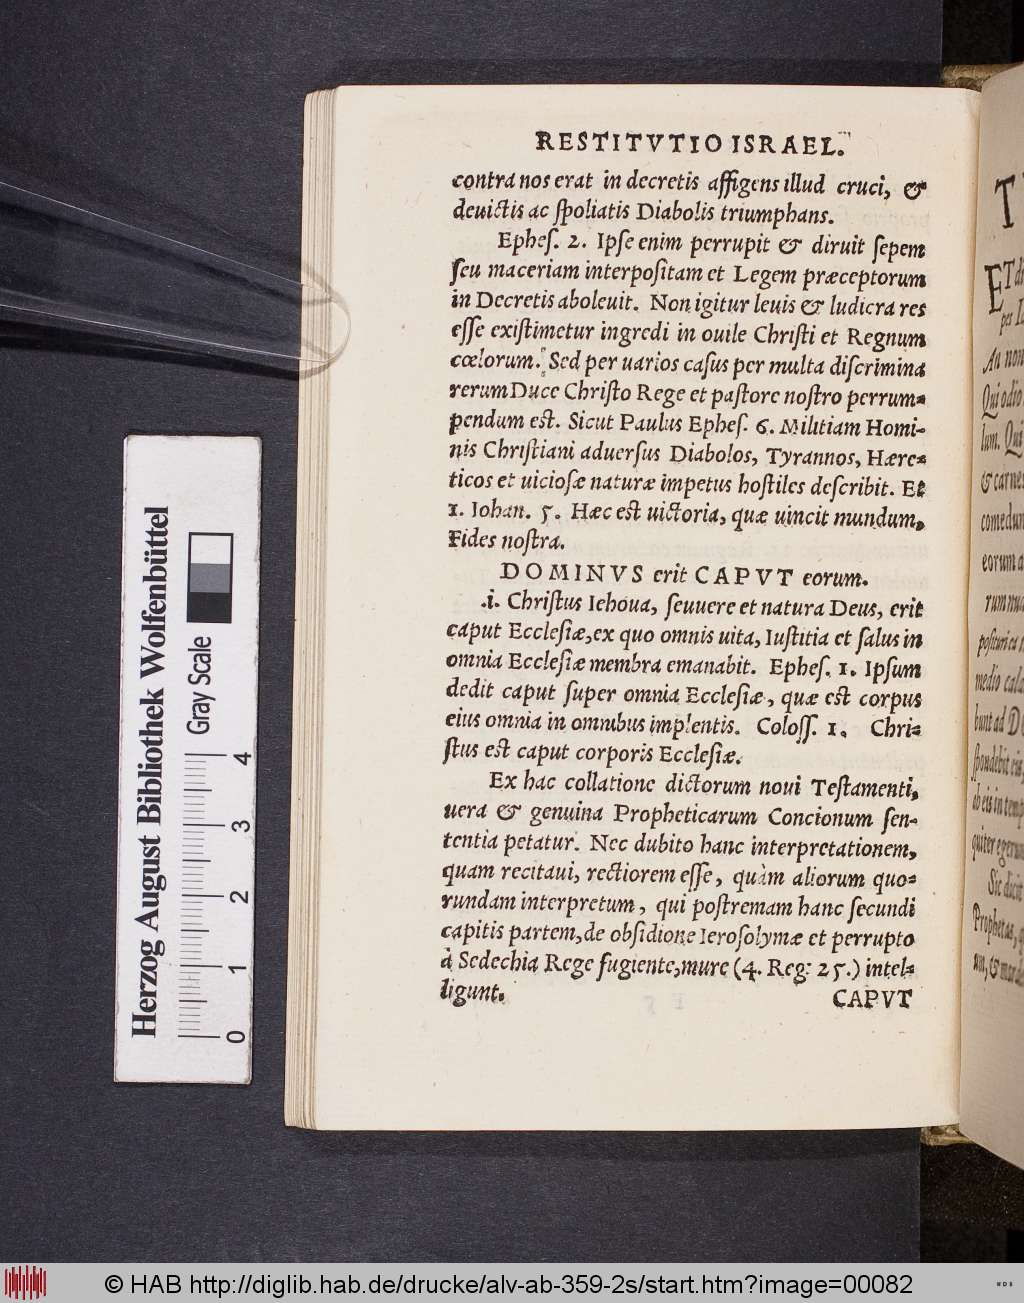 RESTITVTIO ISRAEL.
contra nos erat in decretis affigens illud cruci, &
deuictis ac spoliatis Diabolis triumphans.
Ephes. 2. Ipse enim perrupit & diruit sepem
seu maceriam interpositam et Legem præceptorum
in Decretis aboleuit. Non igitur leuis & ludicra res
esse existimetur ingredi in ouile Christi et Regnum
cœlorum. Sed per uarios casus per multa discrimina
rerum Duce Christo Rege et pastore nostro perrum=
pendum est. Sicut Paulus Ephes. 6. Militiam Homi-
nis Christiani aduersus Diabolos, Tyrannos, Hære=
ticos et uiciosæ naturæ impetus hostiles describit. Et
1. Iohan. 5. Hæc est uictoria, quæ uincit mundum,
Fides nostra.
DOMINVS erit CAPVT eorum.
.i. Christus Iehoua, seuuere et natura Deus, erit
caput Ecclesiæ, ex quo omnis uita, Iustitia et salus in
omnia Ecclesiæ membra emanabit. Ephes. 1. Ipsum
dedit caput super omnia Ecclesiæ, quæ est corpus
eius omnia in omnibus implentis. Coloss. 1. Chri=
stus est caput corporis Ecclesiæ.
Ex hac collatione dictorum noui Testamenti,
uera & genuina Propheticarum Concionum sen-
tentia petatur. Nec dubito hanc interpretationem,
quam recitaui, rectiorem esse, quàm aliorum quo=
rundam interpretum, qui postremam hanc secundi
capitis partem, de obsidione Ierosolymæ et perrupto
à Sedechia Rege fugiente, mure (4. Reg: 25.) intel=
ligunt.
CAPVT
Herzog August Bibliothek Wolfenbüttel
Gray Scale
0 1 2 3 4
T
ET
per
An non
Qui odio
lum. Qui
& carnes
comedunt
eorum
medio
bunt ad
spondebit
ab eis in
quiter egerunt
Sic dicit
Prophetas,
© HAB http://diglib.hab.de/drucke/alv-ab-359-2s/start.htm?image=00082